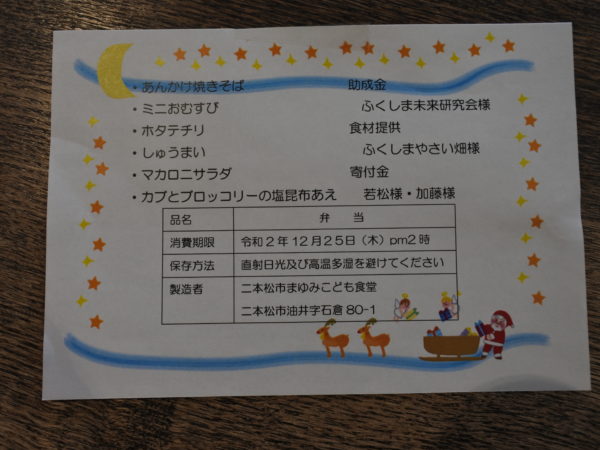 ・あんかけ焼きそば 助成金
・ミニおむすび ふくしま未来研究会様
・ホタテチリ 食材提供
・しゅうまい ふくしまやさい畑様
・マカロニサラダ 寄付金
・カブとブロッコリーの塩昆布あえ 若松様・加藤様
品名 弁 当
消費期限 令和2年12月25日(木)pm2時
保存方法 直射日光及び高温多湿を避けてください
製造者 二本松市まゆみこども食堂
二本松市油井字石倉80-1